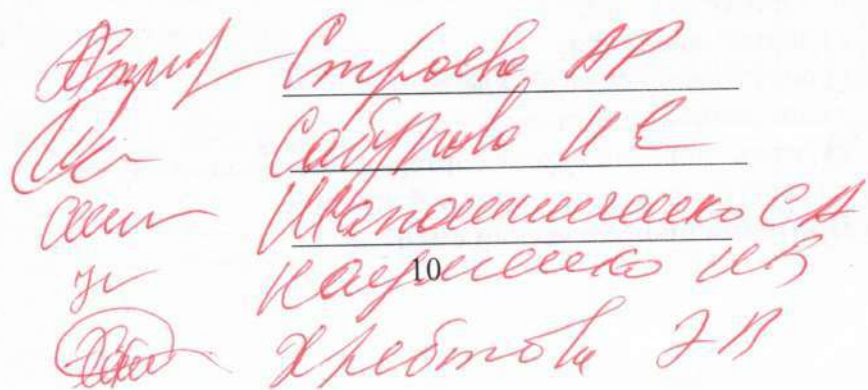 Строева АР
Сабурова И Е
Шапошниченко СА
10
Науменко ИВ
Хребтова ЭВ